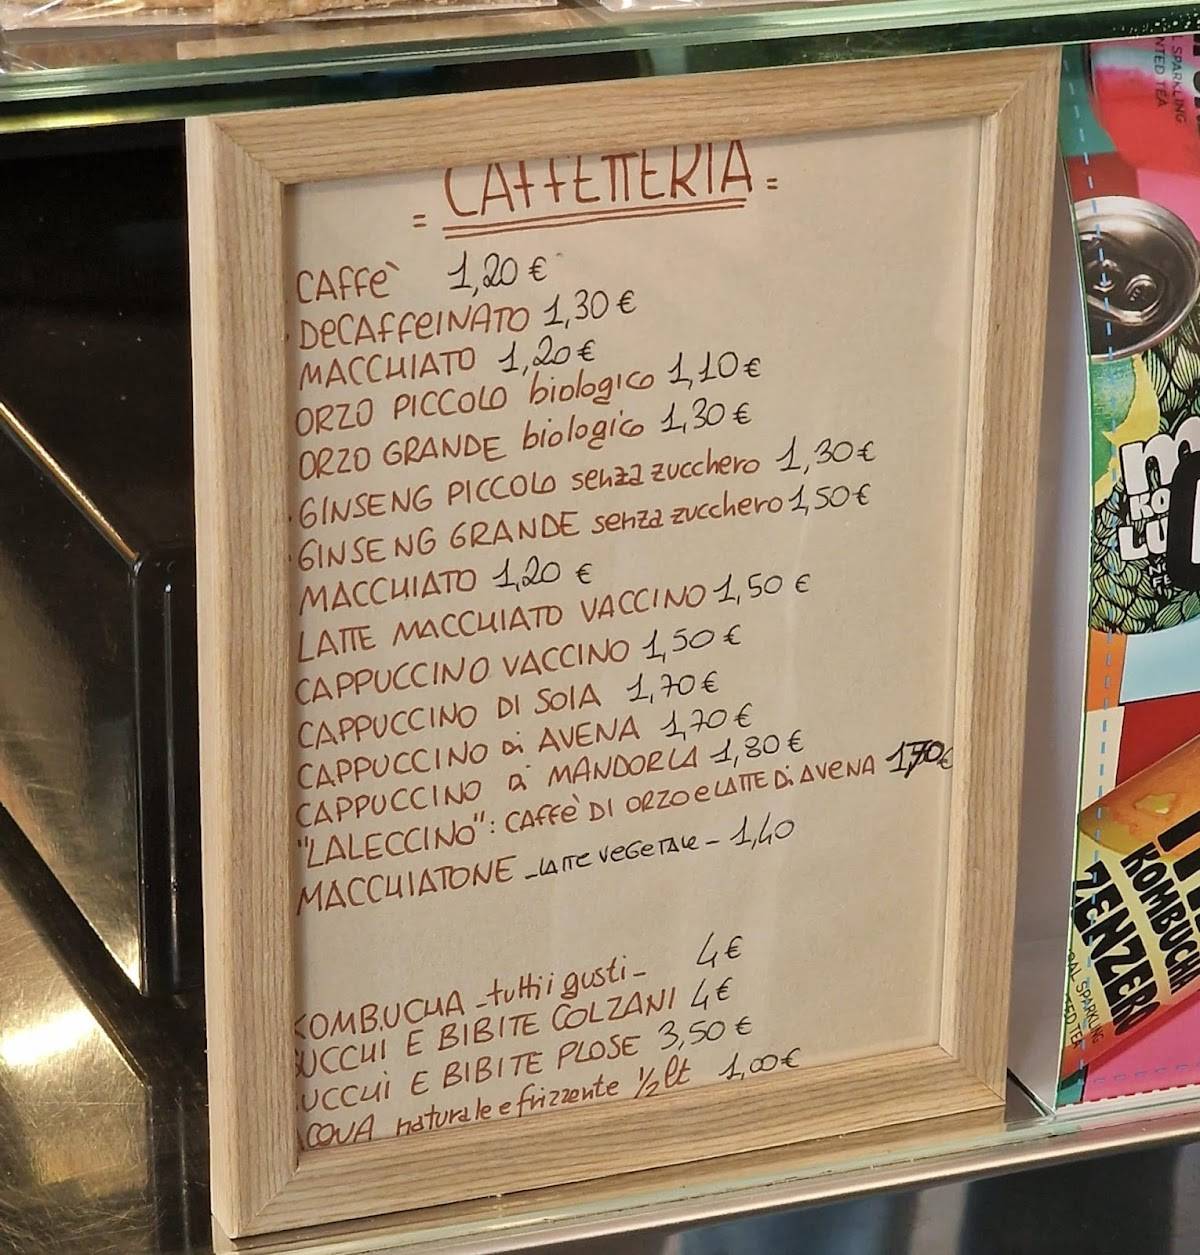 = CAFFETTERIA =
CAFFè 1,20 €
DeCAFFeINATO 1,30 €
MACCHIATO 1,20 €
ORZO PICCOLO biologico 1,10 €
ORZO GRANDE biologico 1,30 €
GINSENG PICCOLO senza zucchero 1,30 €
GINSENG GRANDE senza zucchero 1,50 €
MACCHIATO 1,20 €
LATTE MACCHIATO VACCINO 1,50 €
CAPPUCCINO VACCINO 1,50 €
CAPPUCCINO DI SOIA 1,70 €
CAPPUCCINO Di AVENA 1,70 €
CAPPUCCINO di MANDORLA 1,80 €
"LALECCINO": CAFFè DI ORZO e LATTE Di AVENA 1,70€
MACCHIATONE - LATTE VeGeTALe - 1,40
KOMBUCHA - tutti i gusti - 4 €
SUCCHI E BIBITE COLZANI 4 €
SUCCHi E BIBITE PLOSE 3,50 €
ACQUA naturale e frizzente 1/2 lt 1,00 €
SPARKLING
TEA
KO
LU
KOMBUCHA
ZENZERO
SPARKLING
TEA